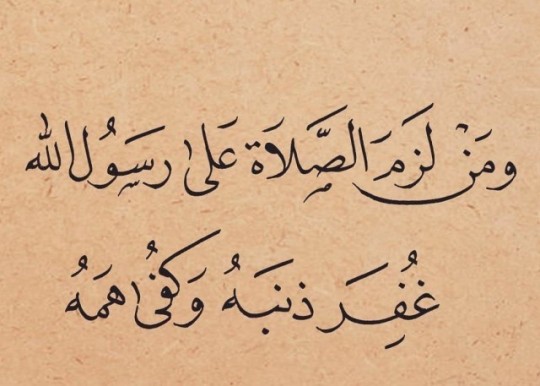 ومَنْ لَزِمَ الصَّلَاةَ عَلى رسَوُل الله
غُفِرَ ذنبَهُ وَكفُى همَهُ